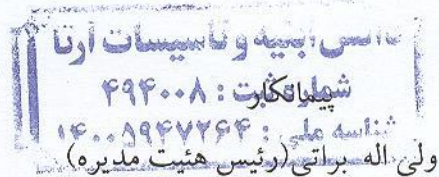 دانش ابنیه و تاسیسات آرتا
شماره ثبت : ۴۹۴۰۰۸
پیمانکار
شناسه ملی : ۱۴۰۰۸۹۴۷۲۶۴
ولی اله براتی(رئیس هئیت مدیره)